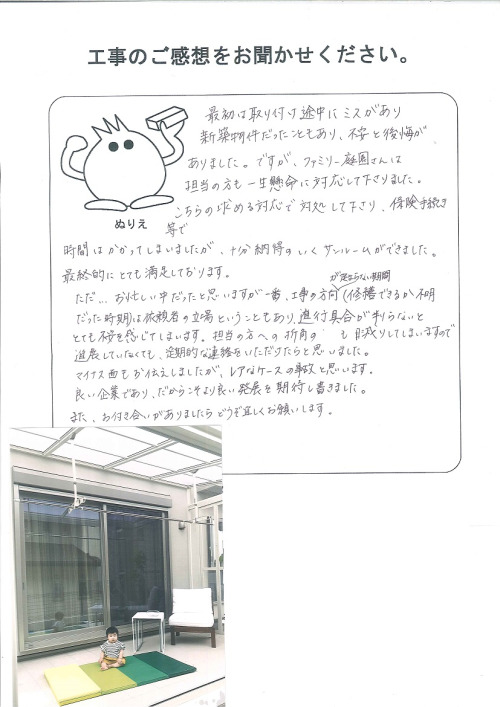 工事のご感想をお聞かせください。
最初は取り付け途中にミスがあり
新築物件だったこともあり、不安と後悔が
ありました。ですが、ファミリー庭園さんは
担当の方も一生懸命に対応して下さりました。
こちらの求める対応で対処して下さり、保険手続き
等で
ぬりえ
時間はかかってしまいましたが、十分納得のいくサンルームができました。
最終的にとても満足しております。
が定まらない期間
ただ…お忙しい中だったと思いますが一番、工事の方向(修繕できるか不明
だった時期)は依頼者の立場ということもあり、進行具合が判らないと
とても不安を感じてしまいます。担当の方への折角の も半減りしてしまいますので
進展していなくても、定期的な連絡をいただけたらと思いました。
マイナス面もお伝えしましたが、レアなケースの事故と思います。
良い企業であり、だからこそより良い発展を期待し書きました。
また、お付き合いがありましたらどうぞ宜しくお願いします。